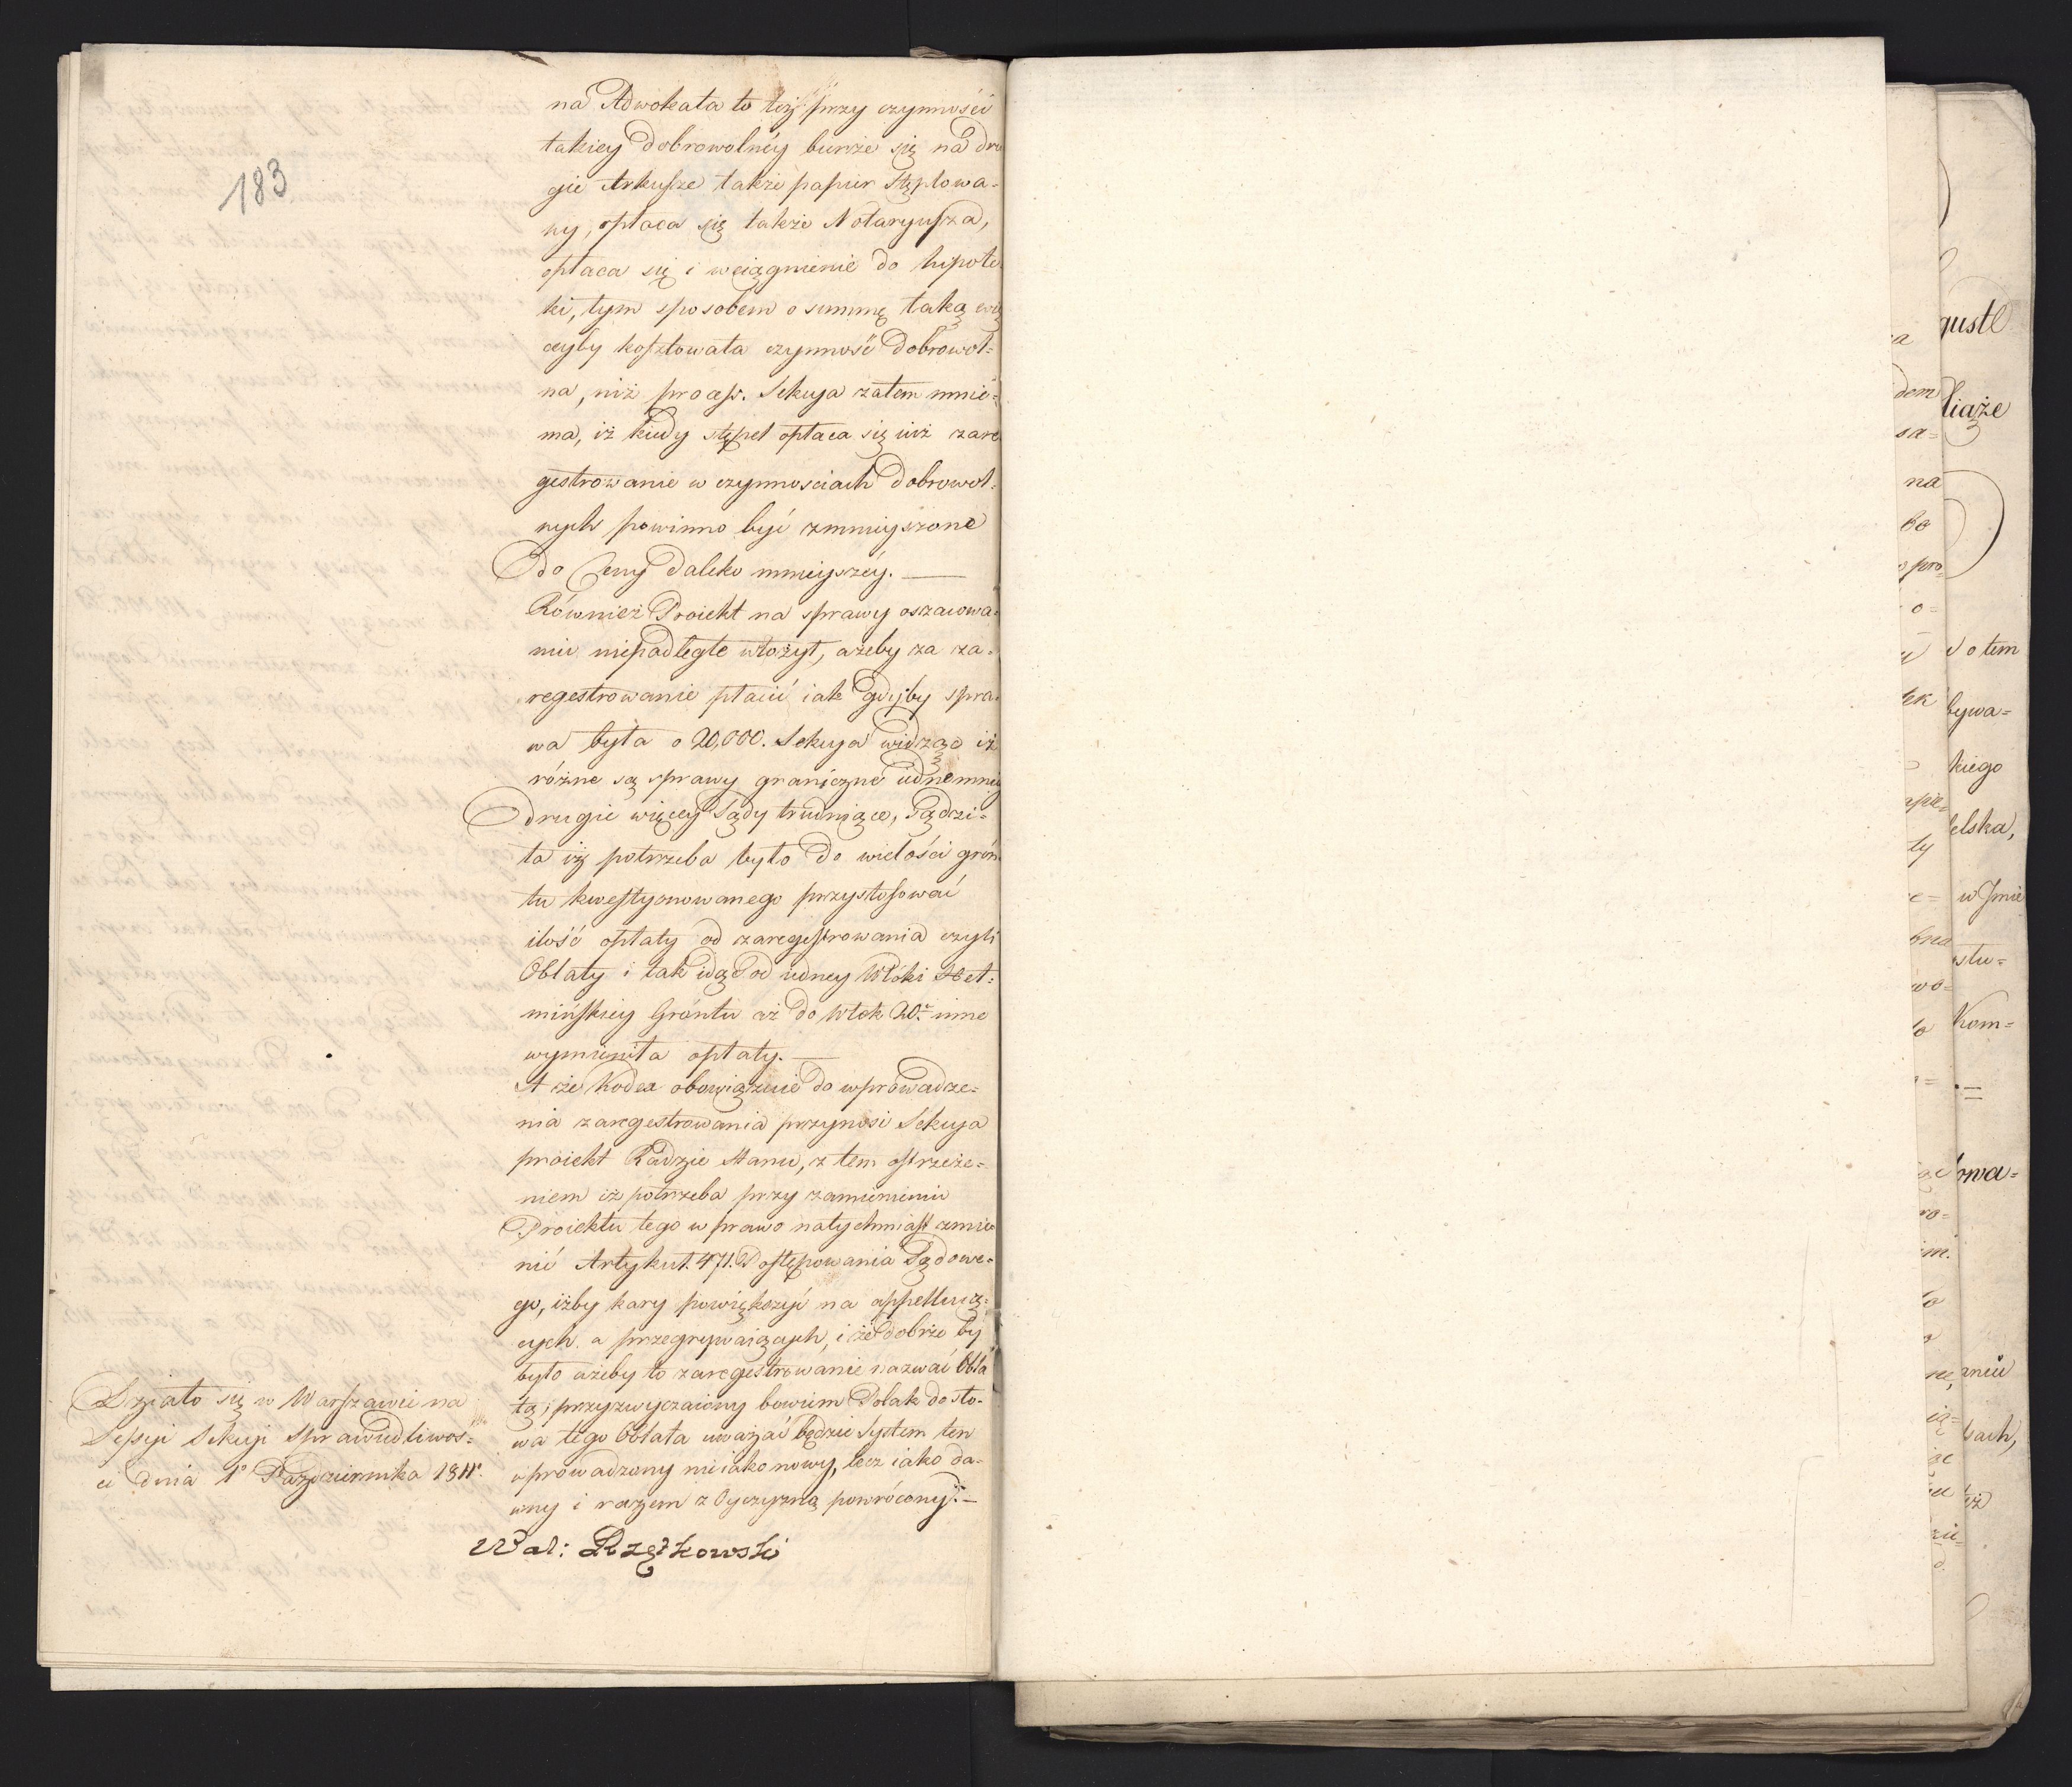 183
na Adwokata to też przy czynności
takiey dobrowolnéy bierze się na dru
gie Arkusze także papier stęplowa=
ny, opłaca się także Notaryusza,
opłaca się i wciągnienie do hipote
ki, tym sposobem o summę taką wię
ceyby kosztowała czynność dobrowol=
na, niż process. Sekcya zatem mnie=
ma, iż kiedy stępel opłaca się iuż zare
gestrowanie w czynnosciach dobrowol=
nych powinno być zmnieyszone
do Ceny daleko mnieyszéy. —
Również Proiekt na sprawy oszacowa=
niu niepodległe włożył, ażeby za za=
regestrowanie płacić iak gdyby spra=
wa była o 20,000. Sekcya widząc iż
różne są sprawy graniczne iedne mniey
drugie więcey Sądy trudniące, Sądzi=
ła iż potrzeba było do wielości grón
tu kwestyonowanego przystosować
ilość opłaty od zaregestrowania czyli
Oblaty i tak idąc od iedney Włoki Heł=
mińskiey Gróntu aż do włok 20. inne
wymieniła opłaty. —
A że Kodex obowiązuie do wprowadze=
nia zaregestrowania przynosi Sekcya
proiekt Radzie Stanu, z tem ostrzeże=
niem iż potrzeba przy zamienieniu
Proiektu tego w prawo natychmiast zmie
nić Artykuł. 471. Postępowania Sądowe=
go, iżby kary powiększyć na appelluią=
cych a przegrywaiących, i że dobrze by
było ażeby to zaregestrowanie nazwać Obla
tą; przyzwyczaiony bowiem Polak do sło=
wa tego Oblata uważać będzie System ten
wprowadzony nie iako nowy, lecz iako da=
wny i razem z Oyczyzną powrócony. —
Działo się w Warszawie na
Sessyi Sekcyi Sprawiedliwoś=
ci dnia 1° Października 1811r.
Wal: Rzętkowski
gustl
liąże
o tem
bywa=
kiego
elska,
w Jmie
stu=
Kom=
owa=
aniu
bach,
dem
sa=
na
bo
pro=
o=
ły